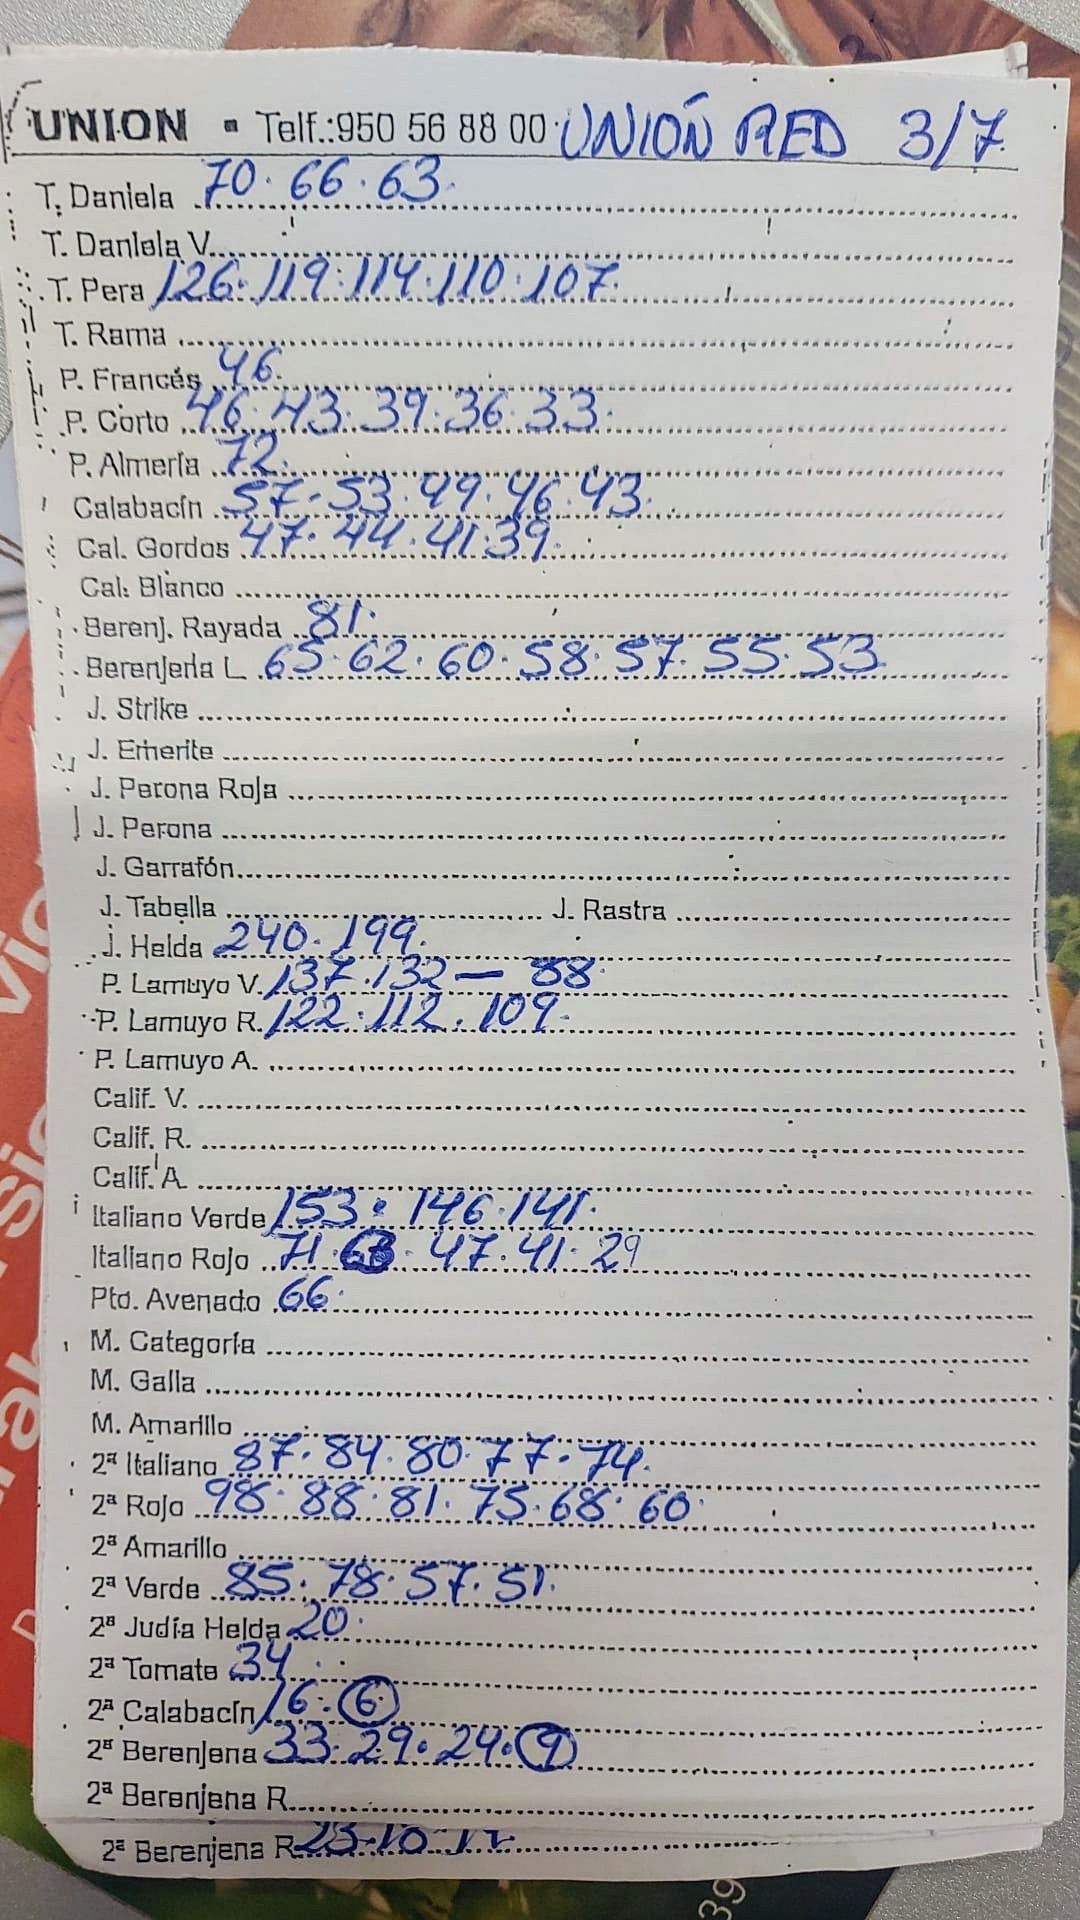 UNION - Telf.:950 56 88 00 UNIÓN RED 3/7
T. Daniela 70. 66. 63.
T. Daniela V.
T. Pera 126. 119. 114. 110. 107.
T. Rama
P. Francés 46.
P. Corto 46. 43. 39. 36. 33.
P. Almería 72.
Calabacín 57. 53. 49. 46. 43.
Cal. Gordos 47. 44. 41. 39.
Cal. Blanco
Berenj. Rayada 81.
Berenjena L. 65. 62. 60. 58. 57. 55. 53
J. Strike
J. Emerite
J. Perona Roja
J. Perona
J. Garrafón
J. Tabella J. Rastra
J. Helda 240. 199.
P. Lamuyo V. 137. 132 — 88.
P. Lamuyo R. 122. 112. 109.
P. Lamuyo A.
Calif. V.
Calif. R.
Calif. A.
Italiano Verde 153. 146. 141.
Italiano Rojo 71. 47. 41. 29
Pto. Avenado 66.
M. Categoría
M. Galla
M. Amarillo
2ª Italiano 87. 84. 80. 77. 74.
2ª Rojo 98. 88. 81. 75. 68. 60.
2ª Amarillo
2ª Verde 85. 78. 57. 51.
2ª Judía Helda 20.
2ª Tomate 34
2ª Calabacín 16. 6
2ª Berenjena 33. 29. 24. 9
2ª Berenjena R.
2ª Berenjena R.
39